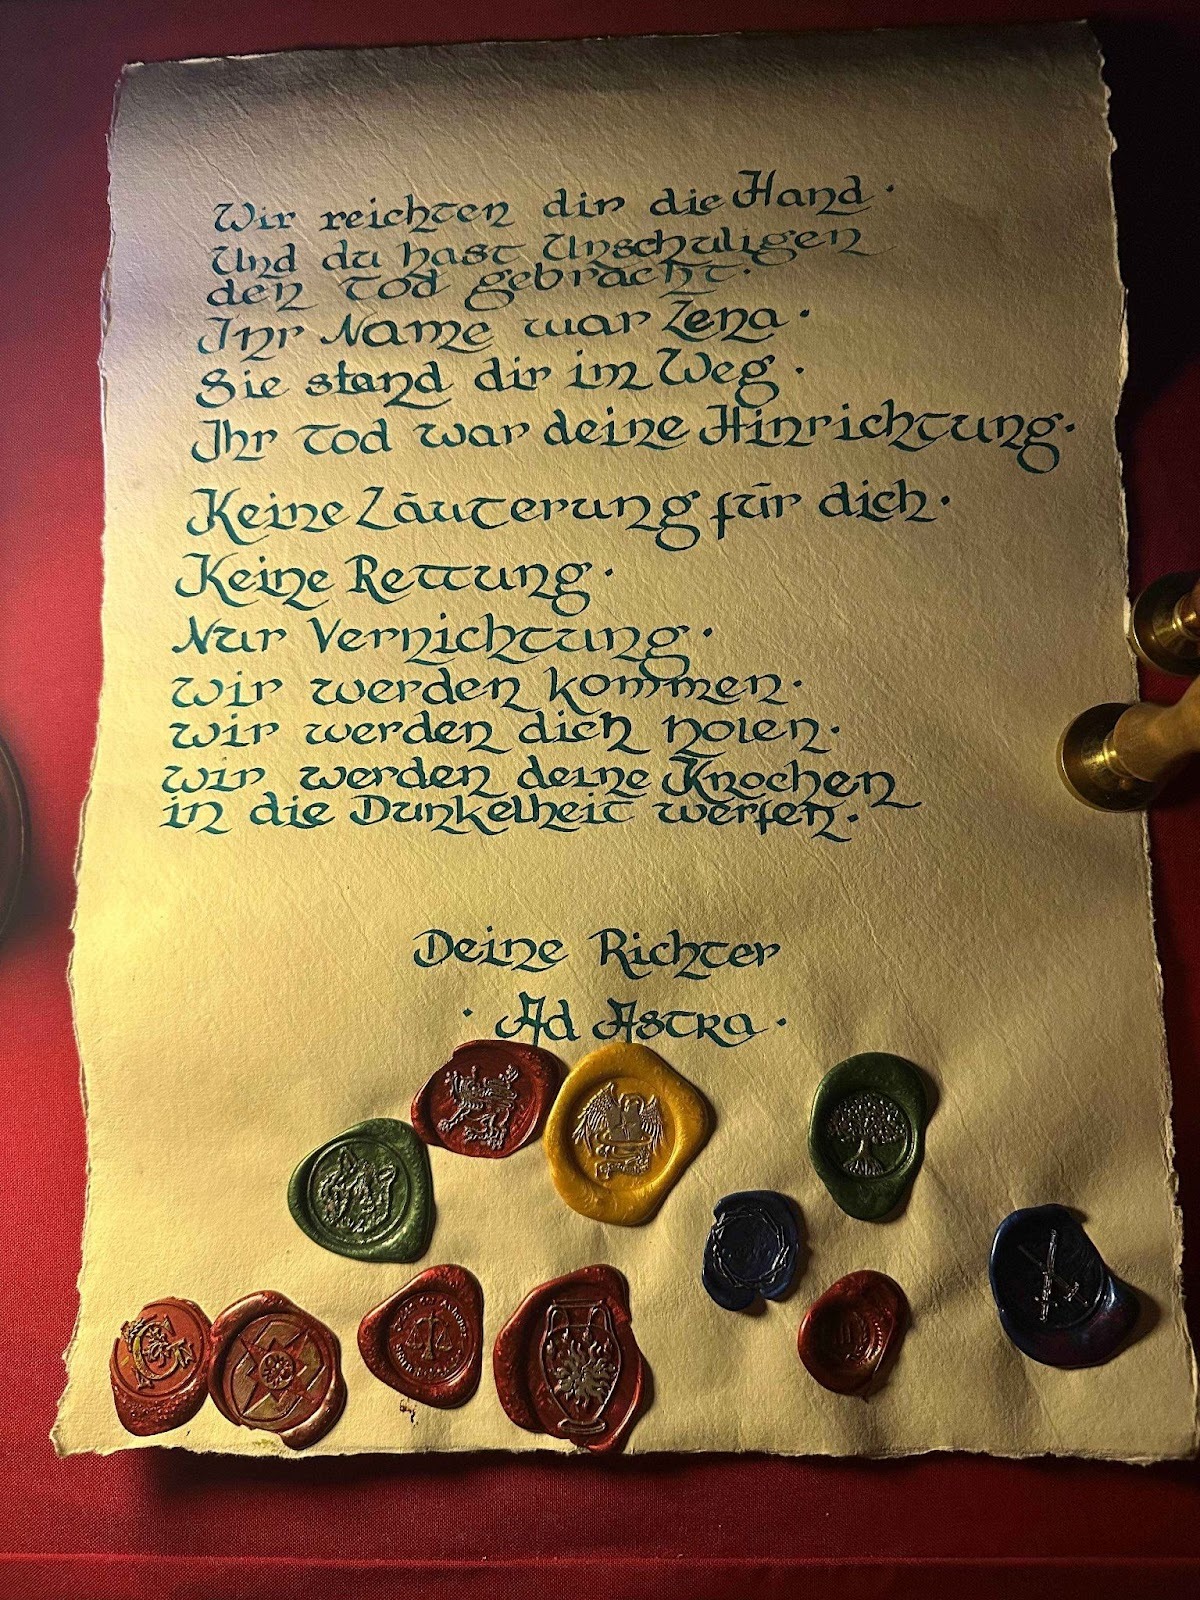 Wir reichten dir die Hand.
Und du hast Unschuligen
den Tod gebracht.
Ihr Name war Zena.
Sie stand dir im Weg.
Ihr Tod war deine Hinrichtung.
Keine Läuterung für dich.
Keine Rettung.
Nur Vernichtung.
wir werden kommen.
wir werden dich holen.
wir werden deine Knochen
in die Dunkelheit werfen.
Deine Richter
· Ad Astra ·